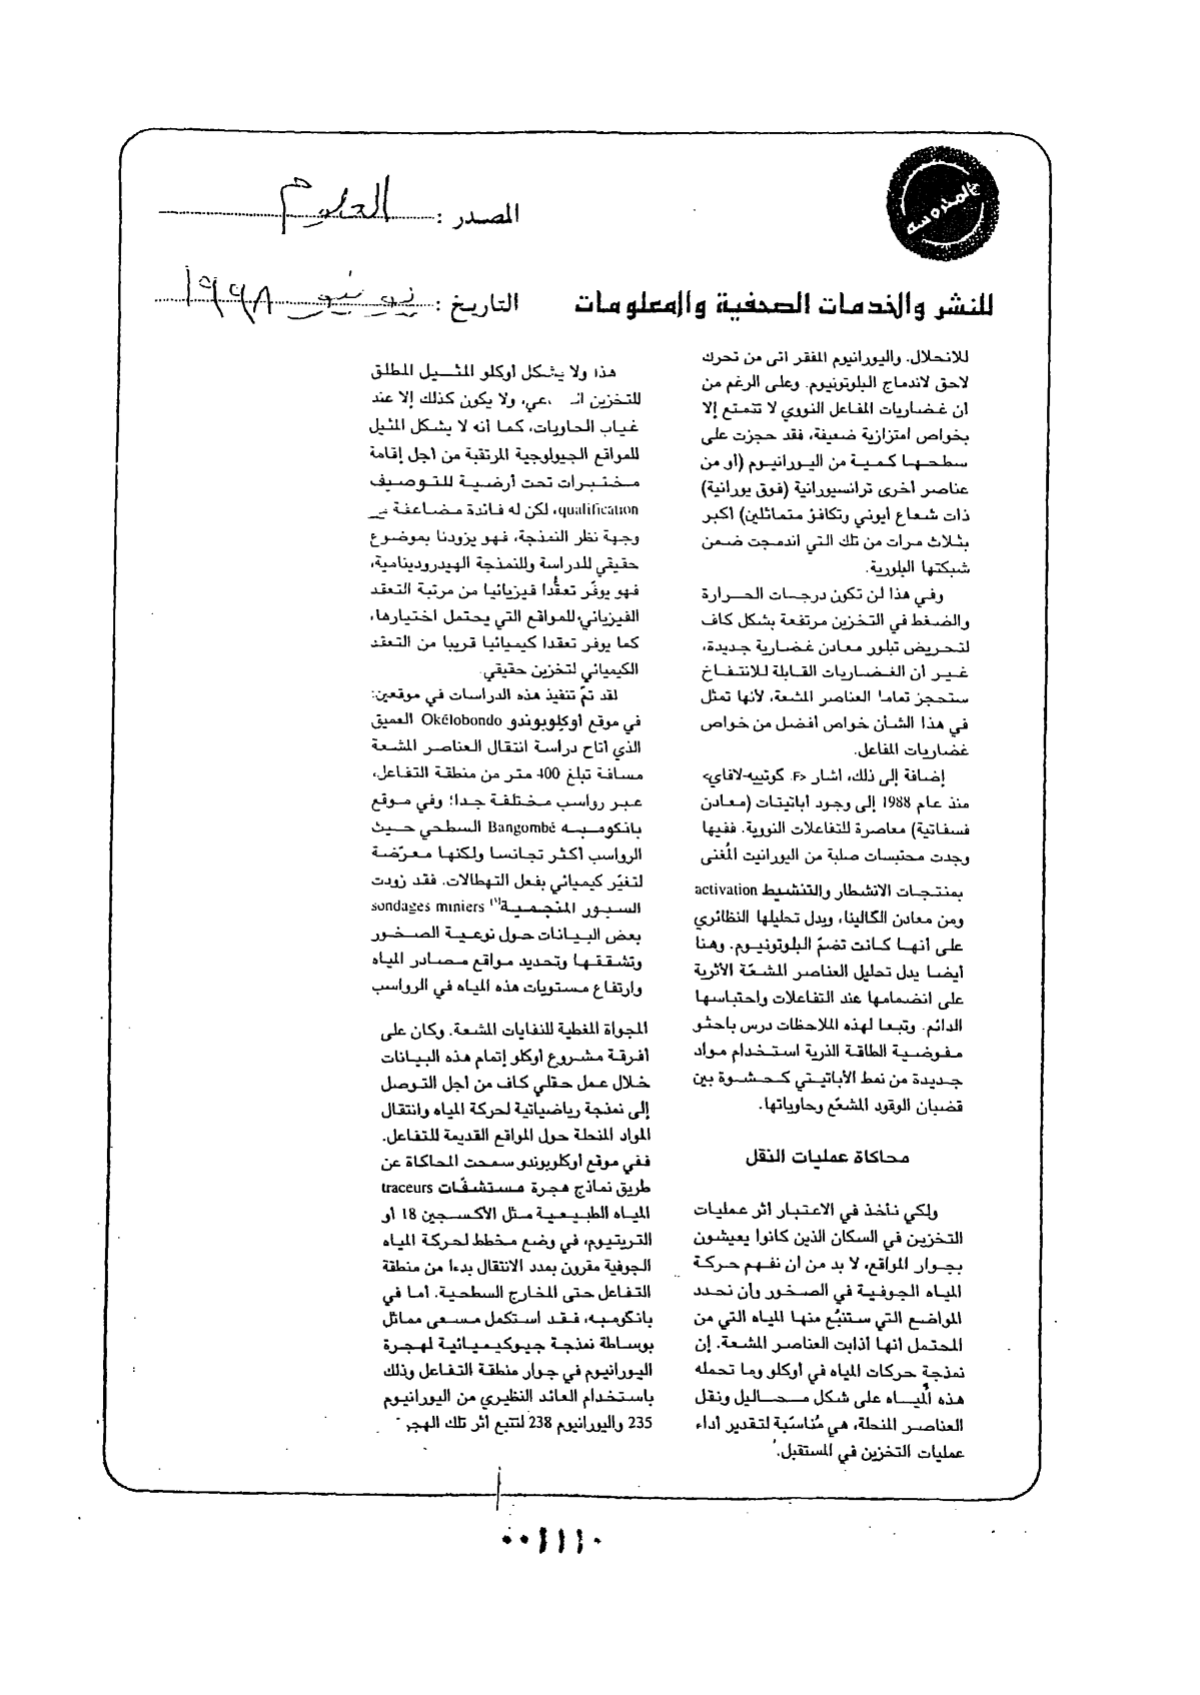 المحروسة
المصدر : العلوم
للنشر والخدمات الصحفية والمعلومات
التاريخ : يونيو ١٩٩٨
للانحلال. واليورانيوم المفقر اتى من تحرك
لاحق لاندماج البلوتونيوم. وعلى الرغم من
أن غضاريات المفاعل النووي لا تتمتع إلا
بخواص امتزازية ضعيفة، فقد حجزت على
سطحها كمية من اليورانيوم (أو من
عناصر أخرى ترانسيورانية (فوق يورانية)
ذات شعاع أيوني وتكافؤ متماثلين) أكبر
بثلاث مرات من تلك التي اندمجت ضمن
شبكتها البلورية.
وفي هذا لن تكون درجات الحرارة
والضغط في التخزين مرتفعة بشكل كاف
لتحريض تبلور معادن غضارية جديدة،
غير أن الغضاريات القابلة للانتفاخ
ستحجز تماما العناصر المشعة، لأنها تمثل
في هذا الشأن خواص أفضل من خواص
غضاريات المفاعل.
إضافة إلى ذلك، اشار <F. كوتييه-لافاي>
منذ عام 1988 إلى وجود أباتيتات (معادن
فسفاتية) معاصرة للتفاعلات النووية. ففيها
وجدت محتبسات صلبة من اليورانيت المُغنى
بمنتجات الانشطار والتنشيط activation
ومن معادن الكالينا، ويدل تحليلها النظائري
على أنها كانت تضمّ البلوتونيوم. وهنا
أيضا يدل تحليل العناصر المشعّة الأثرية
على انضمامها عند التفاعلات واحتباسها
الدائم. وتبعا لهذه الملاحظات درس باحثو
مفوضية الطاقة الذرية استخدام مواد
جديدة من نمط الأباتيتي كحشوة بين
قضبان الوقود المشعّع وحاوياتها.
محاكاة عمليات النقل
ولكي نأخذ في الاعتبار أثر عمليات
التخزين في السكان الذين كانوا يعيشون
بجوار المواقع، لا بد من أن نفهم حركة
المياه الجوفية في الصخور وأن نحدد
المواضع التي ستنبُع منها المياه التي من
المحتمل أنها أذابت العناصر المشعة. إن
نمذجة حركات المياه في أوكلو وما تحمله
هذه المياه على شكل محاليل ونقل
العناصر المنحلة، هي مُناسَبة لتقدير أداء
عمليات التخزين في المستقبل.
هذا ولا يشكل أوكلو المثيل المطلق
للتخزين عي، ولا يكون كذلك إلا عند
غياب الحاويات، كما أنه لا يشكل المثيل
للمواقع الجيولوجية المرتقبة من أجل إقامة
مختبرات تحت أرضية للتوصيف
qualification، لكن له فائدة مضاعفة
وجهة نظر النمذجة، فهو يزودنا بموضوع
حقيقي للدراسة وللنمذجة الهيدرودينامية،
فهو يوفّر تعقُّدا فيزيائيا من مرتبة التعقد
الفيزيائي للمواقع التي يحتمل اختيارها،
كما يوفر تعقدا كيميائيا قريبا من التعقد
الكيميائي لتخزين حقيقي.
لقد تمّ تنفيذ هذه الدراسات في موقعين:
في موقع أوكلوبوندو Okélobondo العميق
الذي أتاح دراسة انتقال العناصر المشعة
مسافة تبلغ 400 متر من منطقة التفاعل،
عبر رواسب مختلفة جدا؛ وفي موقع
بانكومبيه Bangombé السطحي حيث
الرواسب أكثر تجانسا ولكنها معرّضة
لتغيّر كيميائي بفعل التهطالات. فقد زودت
السبور المنجمية⁽¹⁾ sondages miniers
بعض البيانات حول نوعية الصخور
وتشققها وتحديد مواقع مصادر المياه
وارتفاع مستويات هذه المياه في الرواسب
المجواة المغطية للنفايات المشعة. وكان على
أفرقة مشروع أوكلو إتمام هذه البيانات
خلال عمل حقلي كاف من أجل التوصل
إلى نمذجة رياضياتية لحركة المياه وانتقال
المواد المنحلة حول المواقع القديمة للتفاعل.
ففي موقع أوكلوبوندو سمحت المحاكاة عن
طريق نماذج هجرة مستشفّات traceurs
المياه الطبيعية مثل الأكسجين 18 أو
التريتيوم، في وضع مخطط لحركة المياه
الجوفية مقرون بمدد الانتقال بدءا من منطقة
التفاعل حتى المخارج السطحية. أما في
بانگومبيه، فقد استكمل مسعى مماثل
بوساطة نمذجة جيوكيميائية لهجرة
اليورانيوم في جوار منطقة التفاعل وذلك
باستخدام العائد النظيري من اليورانيوم
235 واليورانيوم 238 لتتبع أثر تلك الهجر